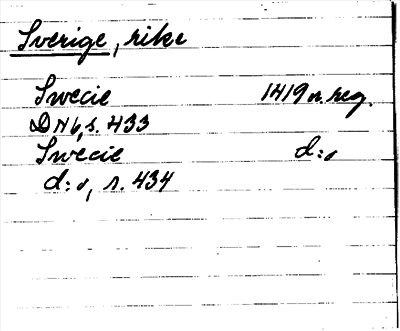 Sverige, rike
Swecie 1419 n. reg.
DN 6, s. 433
Swecie d:o
d:o, s. 434